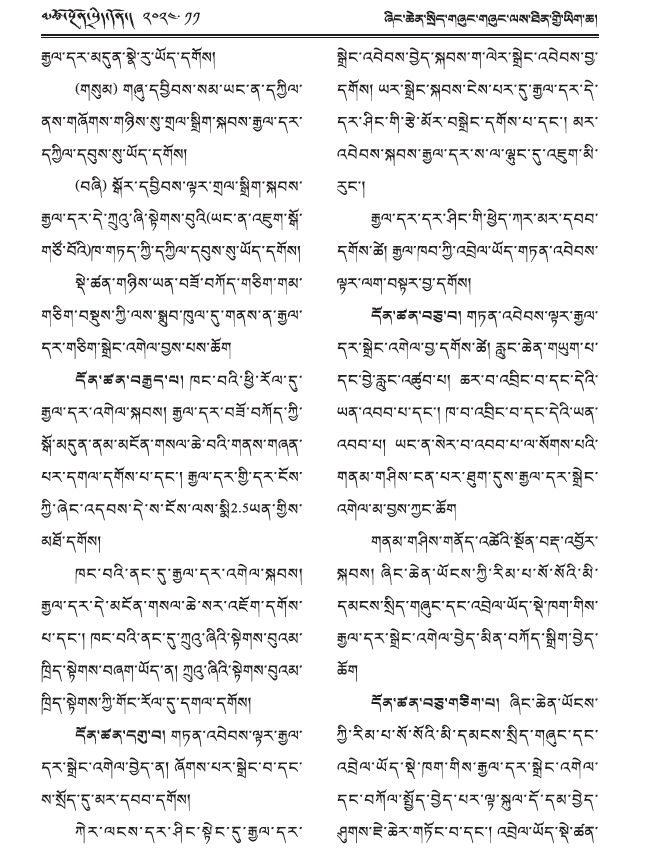 ༢༠༢༤·༡༡
ཞིང་ཆེན་སྲིད་གཞུང་གཞུང་ལས་ཐིན་གྱི་ཡིག་ཆ།
རྒྱལ་དར་མདུན་སྣེ་རུ་ཡོད་དགོས།
(གསུམ) གཞུ་དབྱིབས་སམ་ཡང་ན་དཀྱིལ་
ནས་གཞོགས་གཉིས་སུ་གྲལ་སྒྲིག་སྐབས་རྒྱལ་དར་
དཀྱིལ་དབུས་སུ་ཡོད་དགོས།
(བཞི) སྒོར་དབྱིབས་ལྟར་གྲལ་སྒྲིག་སྐབས་
རྒྱལ་དར་དེ་ཀྲུའུ་ཞི་སྟེགས་བུའི(ཡང་ན་འཇུག་སྒོ་
གཙོ་བོའི)ཁ་གཏད་ཀྱི་དཀྱིལ་དབུས་སུ་ཡོད་དགོས།
སྡེ་ཚན་གཉིས་ཡན་བཟོ་བཀོད་གཅིག་གམ་
གཅིག་བསྡུས་ཀྱི་ལས་སྒྲུབ་ཁུལ་དུ་གནས་ན་རྒྱལ་
དར་གཅིག་སྒྲེང་འགེལ་བྱས་པས་ཆོག
དོན་ཚན་བརྒྱད་པ། ཁང་བའི་ཕྱི་རོལ་དུ་
རྒྱལ་དར་འགེལ་སྐབས། རྒྱལ་དར་བཟོ་བཀོད་ཀྱི་
སྒོ་མདུན་ནམ་མངོན་གསལ་ཆེ་བའི་གནས་གཞན་
པར་དགལ་དགོས་པ་དང་། རྒྱལ་དར་གྱི་དར་ངོས་
ཀྱི་ཞེང་འདབས་དེ་ས་ངོས་ལས་སྨི2.5ཡན་གྱིས་
མཐོ་དགོས།
ཁང་བའི་ནང་དུ་རྒྱལ་དར་འགེལ་སྐབས།
རྒྱལ་དར་དེ་མངོན་གསལ་ཆེ་སར་འཇོག་དགོས་
པ་དང་། ཁང་བའི་ནང་དུ་ཀྲུའུ་ཞིའི་སྟེགས་བུའམ་
ཁྲིད་སྟེགས་བཞག་ཡོད་ན། ཀྲུའུ་ཞིའི་སྟེགས་བུའམ་
ཁྲིད་སྟེགས་ཀྱི་གོང་རོལ་དུ་དགལ་དགོས།
དོན་ཚན་དགུ་བ། གཏན་འབེབས་ལྟར་རྒྱལ་
དར་སྒྲེང་འགེལ་བྱེད་ན། ཞོགས་པར་སྒྲེང་བ་དང་
ས་སྲོད་དུ་མར་དབབ་དགོས།
ཀེར་ལངས་དར་ཤིང་སྟེང་དུ་རྒྱལ་དར་
སྒྲེང་འབེབས་བྱེད་སྐབས་ག་ལེར་སྒྲེང་འབེབས་བྱ་
དགོས། ཡར་སྒྲེང་སྐབས་ངེས་པར་དུ་རྒྱལ་དར་དེ་
དར་ཤིང་གི་རྩེ་མོར་བསྒྲེང་དགོས་པ་དང་། མར་
འབེབས་སྐབས་རྒྱལ་དར་ས་ལ་ལྷུང་དུ་འཇུག་མི་
རུང་།
རྒྱལ་དར་དར་ཤིང་གི་ཕྱེད་ཀར་མར་དབབ་
དགོས་ཚེ། རྒྱལ་ཁབ་ཀྱི་འབྲེལ་ཡོད་གཏན་འབེབས་
ལྟར་ལག་བསྟར་བྱ་དགོས།
དོན་ཚན་བཅུ་བ། གཏན་འབེབས་ལྟར་རྒྱལ་
དར་སྒྲེང་འགེལ་བྱ་དགོས་ཚེ། རླུང་ཆེན་གཡུག་པ་
དང་བྱེ་རླུང་འཚུབ་པ། ཆར་བ་འབྲིང་བ་དང་དེའི་
ཡན་འབབ་པ་དང་། ཁ་བ་འབྲིང་བ་དང་དེའི་ཡན་
འབབ་པ། ཡང་ན་སེར་བ་འབབ་པ་ལ་སོགས་པའི་
གནམ་གཤིས་ངན་པར་ཐུག་དུས་རྒྱལ་དར་སྒྲེང་
འགེལ་མ་བྱས་ཀྱང་ཆོག
གནམ་གཤིས་གནོད་འཚེའི་སྔོན་བརྡ་འབྱོར་
སྐབས། ཞིང་ཆེན་ཡོངས་ཀྱི་རིམ་པ་སོ་སོའི་མི་
དམངས་སྲིད་གཞུང་དང་འབྲེལ་ཡོད་སྡེ་ཁག་གིས་
རྒྱལ་དར་སྒྲེང་འགེལ་བྱེད་མིན་བཀོད་སྒྲིག་བྱེད་
ཆོག
དོན་ཚན་བཅུ་གཅིག་པ། ཞིང་ཆེན་ཡོངས་
ཀྱི་རིམ་པ་སོ་སོའི་མི་དམངས་སྲིད་གཞུང་དང་
འབྲེལ་ཡོད་སྡེ་ཁག་གིས་རྒྱལ་དར་སྒྲེང་འགེལ་
དང་བཀོལ་སྤྱོད་བྱེད་པར་ལྟ་སྐུལ་དོ་དམ་བྱེད་
ཤུགས་ཇེ་ཆེར་གཏོང་བ་དང་། འབྲེལ་ཡོད་སྡེ་ཚན་